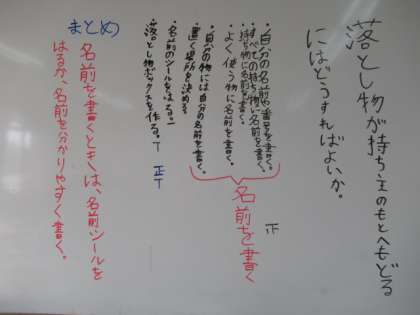 落とし物が持ち主のもとへもどる
にはどうすればよいか。
・自分の名前や番号を書く。
・すべての持ち物に名前を書く。
・持ち物に名前を書く。
・よく使う物に名前を書く。
・自分の物には自分の名前を書く。
・置く場所を決める
・名前のシールをはる。一
・落とし物ボックスを作る。T
正T
正
名前を書く
まとめ
名前を書くときは、名前シールを
はるか、名前を分かりやすく書く。